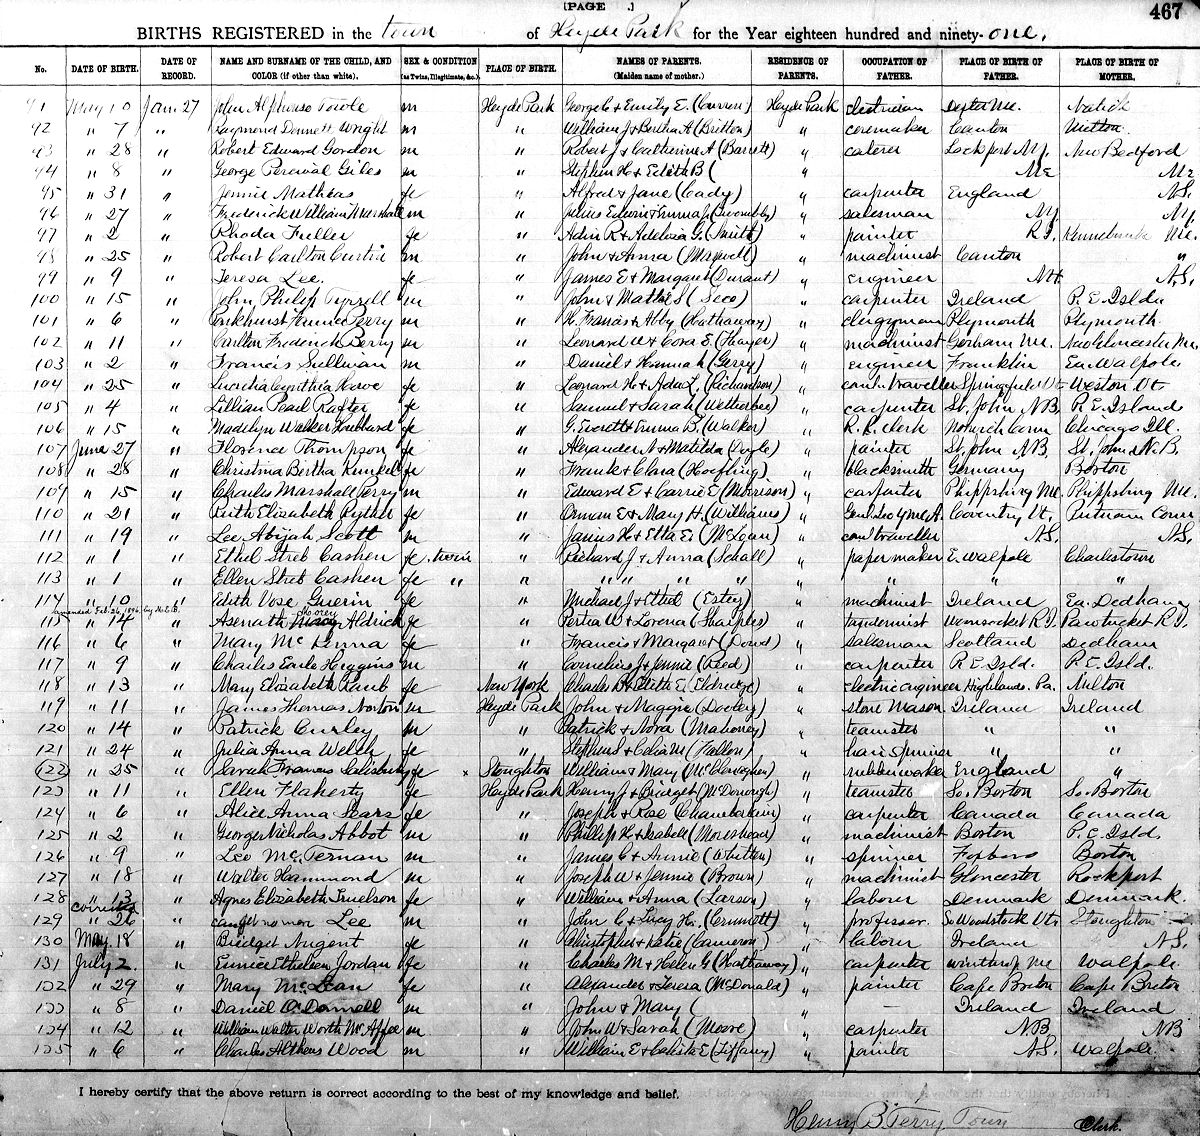 [PAGE .] 467
BIRTHS REGISTERED in the town of Hyde Park for the Year eighteen hundred and ninety-one.
No. DATE OF BIRTH. DATE OF RECORD. NAME AND SURNAME OF THE CHILD, AND COLOR (if other than white). SEX & CONDITION (as Twins, Illegitimate, &c.) PLACE OF BIRTH. NAMES OF PARENTS. (Maiden name of mother.) RESIDENCE OF PARENTS. OCCUPATION OF FATHER. PLACE OF BIRTH OF FATHER. PLACE OF BIRTH OF MOTHER.
91 May 10 Jan. 27 John Alphonso Towle m Hyde Park George C & Emily E. (Curren) Hyde Park electrician Dexter Me. Natick
92 " 7 " Raymond Dennett Wright m " William J & Bertha A (Britton) " Canton Milton
93 " 28 " Robert Edward Gordon m " Robert J & Catherine A (Barrett) " caterer Lockport N.Y. New Bedford
94 " 8 " George Percival Giles m " Stephen H & Edith B ( " Me Me
95 " 31 " Jennie Mathias fe " Alfred & Jane (Cady) " carpenter England N.S.
96 " 27 " Frederick William Marshall m " Julius Edwin & Emma J. " salesman N.Y. N.Y.
97 " 2 " Rhoda Fuller fe " Adin R & Adelvia G. (Smith) " painter R.I. Kennebunk Me.
98 " 25 " Robert Carlton Curtis m " John & Anna (Maxwell) " machinist Canton "
99 " 9 " Teresa Lee. fe " James E & Margaret (Durant) " engineer N.H. N.S.
100 " 15 " John Philip Tyrrell m " John & Mattie S (Seco) " carpenter Ireland P. E. Islds
101 " 6 " Parkhurst Perry m " H. Francis & Abby (Hathaway) " clergyman Plymouth Plymouth
102 " 11 " Carlton Frederick Berry m " Leonard W & Cora E. (Thayer) " machinist Gorham Me. New Gloucester Me.
103 " 2 " Francis Sullivan m " Daniel & Hannah (Gerry) " engineer Franklin Ea. Walpole
104 " 25 " Lucretia Cynthia Howe fe " Leonard H. & Ada L. (Richardson) " com'l traveller Springfield Vt Weston Vt
105 " 4 " Lillian Pearl Rafter fe " Samuel & Sarah (Wetherbee) " carpenter St. John N.B. P. E. Island
106 " 15 " Madelyn Walker Hubbard fe " G. Everett & Emma B. (Walker) " R.R. clerk Norwich Conn Chicago Ill.
107 June 27 " Florence Thompson fe " Alexander N & Matilda (Doyle) " painter St. John N.B. St. John N.B.
108 " 28 " Christina Bertha Kunkel fe " Frank & Clara (Hoefling) " blacksmith Germany Boston
109 " 15 " Charles Marshall Perry m " Edward E & Carrie E (Morrison) " carpenter Phippsburg Me. Phippsburg Me.
110 " 21 " Ruth Elizabeth fe " Orman E & Mary H. (Williams) " Gen. Sec Y.M.C.A. Coventry Vt. Putnam Conn
111 " 19 " Lee Abijah Scott m " James H & Etta E. (McLean) " com traveller N.S. N.S.
112 " 1 " Ethel Streb Cashen fe. twin " Richard J & Anna (Schall) " paper maker E. Walpole Charlestown
113 " 1 " Ellen Streb Cashen fe " " " " " " " " " "
114 " 10 " Edith Vose Guerin fe " Michael J & Ethel (Estey) " machinist Ireland Ea. Dedham
amended Feb. 26, 1896, by H.B.B.
115 " 14 " Asenath Aldrich fe " Pertia W & Lorena (Sharples) " Woonsocket R.I. Pawtucket R.I.
116 " 6 " Mary McKenna fe " Francis & Margaret (Dowd) " salesman Scotland Dedham
117 " 9 " Charles Earle Higgins m " Cornelius J & Jennie (Reed) " carpenter P. E. Isld. P. E. Isld.
118 " 13 " Mary Elizabeth Raub fe New York Charles B & Edith E. (Eldredge) " electric engineer Highlands. Pa. Milton
119 " 11 " James Thomas Norton m Hyde Park John & Maggie (Dooley) " stone Mason Ireland Ireland
120 " 14 " Patrick Curley m " Patrick & Nora (Mahoney) " teamster " "
121 " 24 " Julia Anna Welch fe " Stephen S & Celia M (Fallon) " hair spinner " "
122 " 25 " Sarah Frances Salisbury fe x Stoughton William & Mary (McClenaghen) " rubber worker England "
123 " 11 " Ellen Flaherty fe Hyde Park Henry J & Bridget (McDonough) " teamster So. Boston So. Boston
124 " 6 " Alice Anna Sears fe " Joseph & Rose (Chamberlain) " carpenter Canada Canada
125 " 2 " George Nicholas Abbot m " Phillip H & Isabell (Moreshead) " machinist Boston P. E. Isld.
126 " 9 " Leo McTernan m " James C & Annie (Whitten) " spinner Foxboro Boston
127 " 18 " Walter Hammond m " Joseph W & Jennie (Brown) " machinist Gloucester Rockport
128 " 13 " Agnes Elizabeth Truelson fe " William & Anna (Larson) " laborer Denmark Denmark.
129 " 26 " Lee m " John C & Lucy H. (Emmett) " professor. So Woodstock Vt. Stoughton
130 May. 18 " Bridget Nugent fe " Christopher & Katie (Cameron) " laborer Ireland N.S.
131 July 2. " Eunice Ethelen Jordan fe " Charles M & Helen G (Hathaway) " carpenter Winthrop Me Walpole
132 " 29 " Mary McLean fe " Alexander & Teresa (McDonald) " painter Cape Breton Cape Breton
133 " 8 " Daniel O'Donnell m " John & Mary ( " — Ireland Ireland
134 " 12 " William Walter Worth McAffee m " John W & Sarah (Moore) " carpenter N.B N.B
135 " 6 " Charles Altheus Wood m " William E & Celista E (Tiffany) " painter N.S. Walpole.
I hereby certify that the above return is correct according to the best of my knowledge and belief.
Henry B Terry Town Clerk.